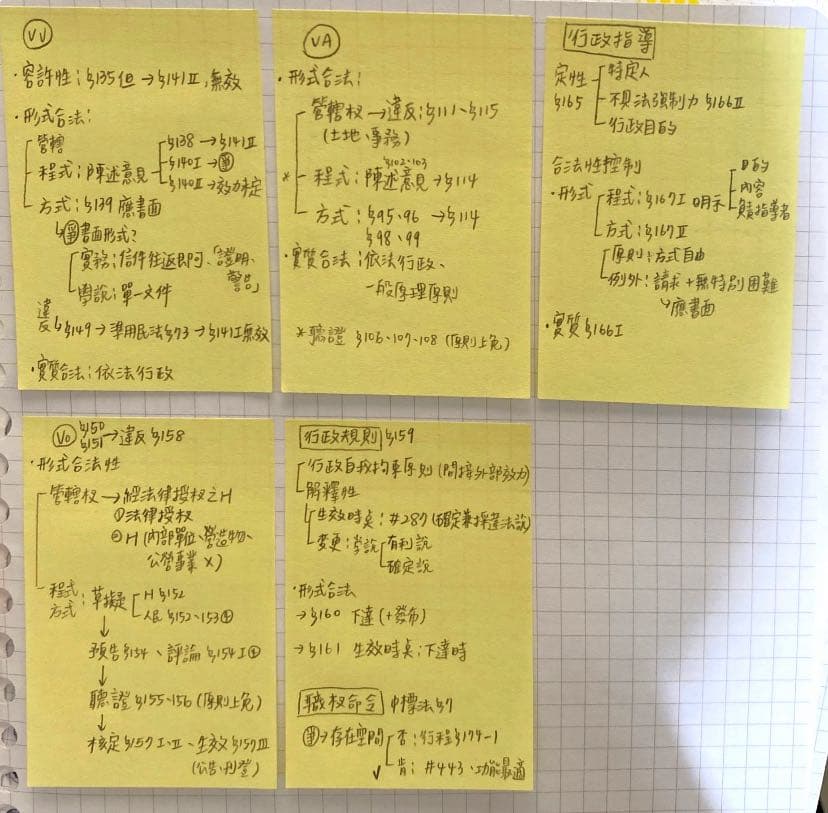 VV
・容許性：§135但→§141Ⅱ,無效
・形式合法：
管轄
程式：陳述意見
§138→§141Ⅱ
§140Ⅰ→爭
§140Ⅱ→效力未定
方式：§139應書面
↳爭書面形式？
實務：信件往返即可、「證明、警告」
學說：單一文件
違反↳§149→準用民法§73→§141Ⅰ無效
・實質合法：依法行政
VA
・形式合法：
管轄權→違反：§111、§115
(土地、事務)
§102、103
* 程式：陳述意見→§114
方式：§95、96→§114
§98、99
・實質合法：依法行政、
一般原理原則
*聽證 §106、107、108 (原則上免)
行政指導
定性
§165
特定人
不具法強制力 §166Ⅱ
行政目的
合法性控制
・形式
程式：§167Ⅰ明示
目的
內容
負責指導者
方式：§167Ⅱ
原則：方式自由
例外：請求+無特別困難
↳應書面
・實質 §166Ⅰ
VO §150 §151→違反§158
・形式合法性
管轄權→經法律授權之H
①法律授權
②H (內部單位、營造物、
公營事業 X)
程式
方式：草擬
H §152
人民 §152、153
↓
預告§154、評論§154Ⅰ④
↓
聽證§155、156 (原則上免)
↓
核定§157Ⅰ、Ⅱ、生效§157Ⅲ
(公告、刊登)
行政規則 §159
行政自我拘束原則 (間接外部效力)
解釋性
生效時點：#287 (確定兼採違法說)
變更：學說
有利說
確定說
・形式合法
→§160 下達 (+發布)
→§161 生效時點：下達時
職權命令 中標法§7
爭→存在空間
否：行程§174-1
✓ 肯：#443、功能最適